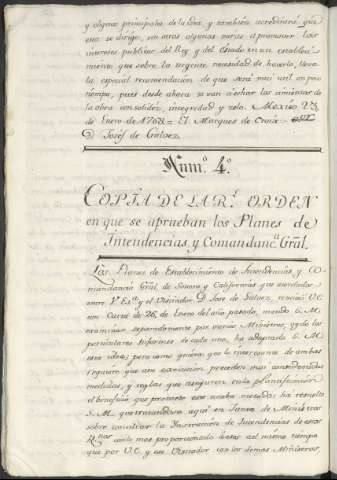 y objetos principales de la idea, y tambien acreditará que
esto se dirige, sin otras algunas miras á promover los
intereses publicos del Rey y del Estado en un estableci-
miento que sobre la urgente necesidad de hacerlo, lleva
la especial recomendacion de que será mui util en poco
tiempo, pues desde ahora se van á echar los cimientos de
la obra con solidéz, integridad y zelo. Mexico 15
de Enero de 1768 = El Marques de Croix =
D. Josef de Galvez.
Num.º 4.º
COPIA DE LA R.l ORDEN
en que se aprueban los Planes de
Intendencias, y Comandanc.ª Grãl.
Los Planes de Establecimiento de Intendencias y Co-
mandancia Grãl de Sonora y Californias que acordados
entre V. Ex.ª y el Visitador D. Josef de Galvez, remitió V.E.
con Carta de 26, de Enero del año pasado, mandó S.M.
examinar separadamente por varios Ministros, y oydo los
particulares informes de cada uno, ha adoptado S. M.
esta idea; pero como quiera que lo interesante de ambas
requiere que á su execucion preceda mas consideradas
medidas, y reglas que aseguren en la planificacion
el beneficio que promete este nuevo metodo; ha resuelto
S. M. que tratandose aqui en Junta de Ministros
sobre conciliar la Instruccion de Intendencias de estos
R.nos con la mas proporcionada á esos al mismo tiempo
que por V.E. y ese Visitador con los demas Ministros,